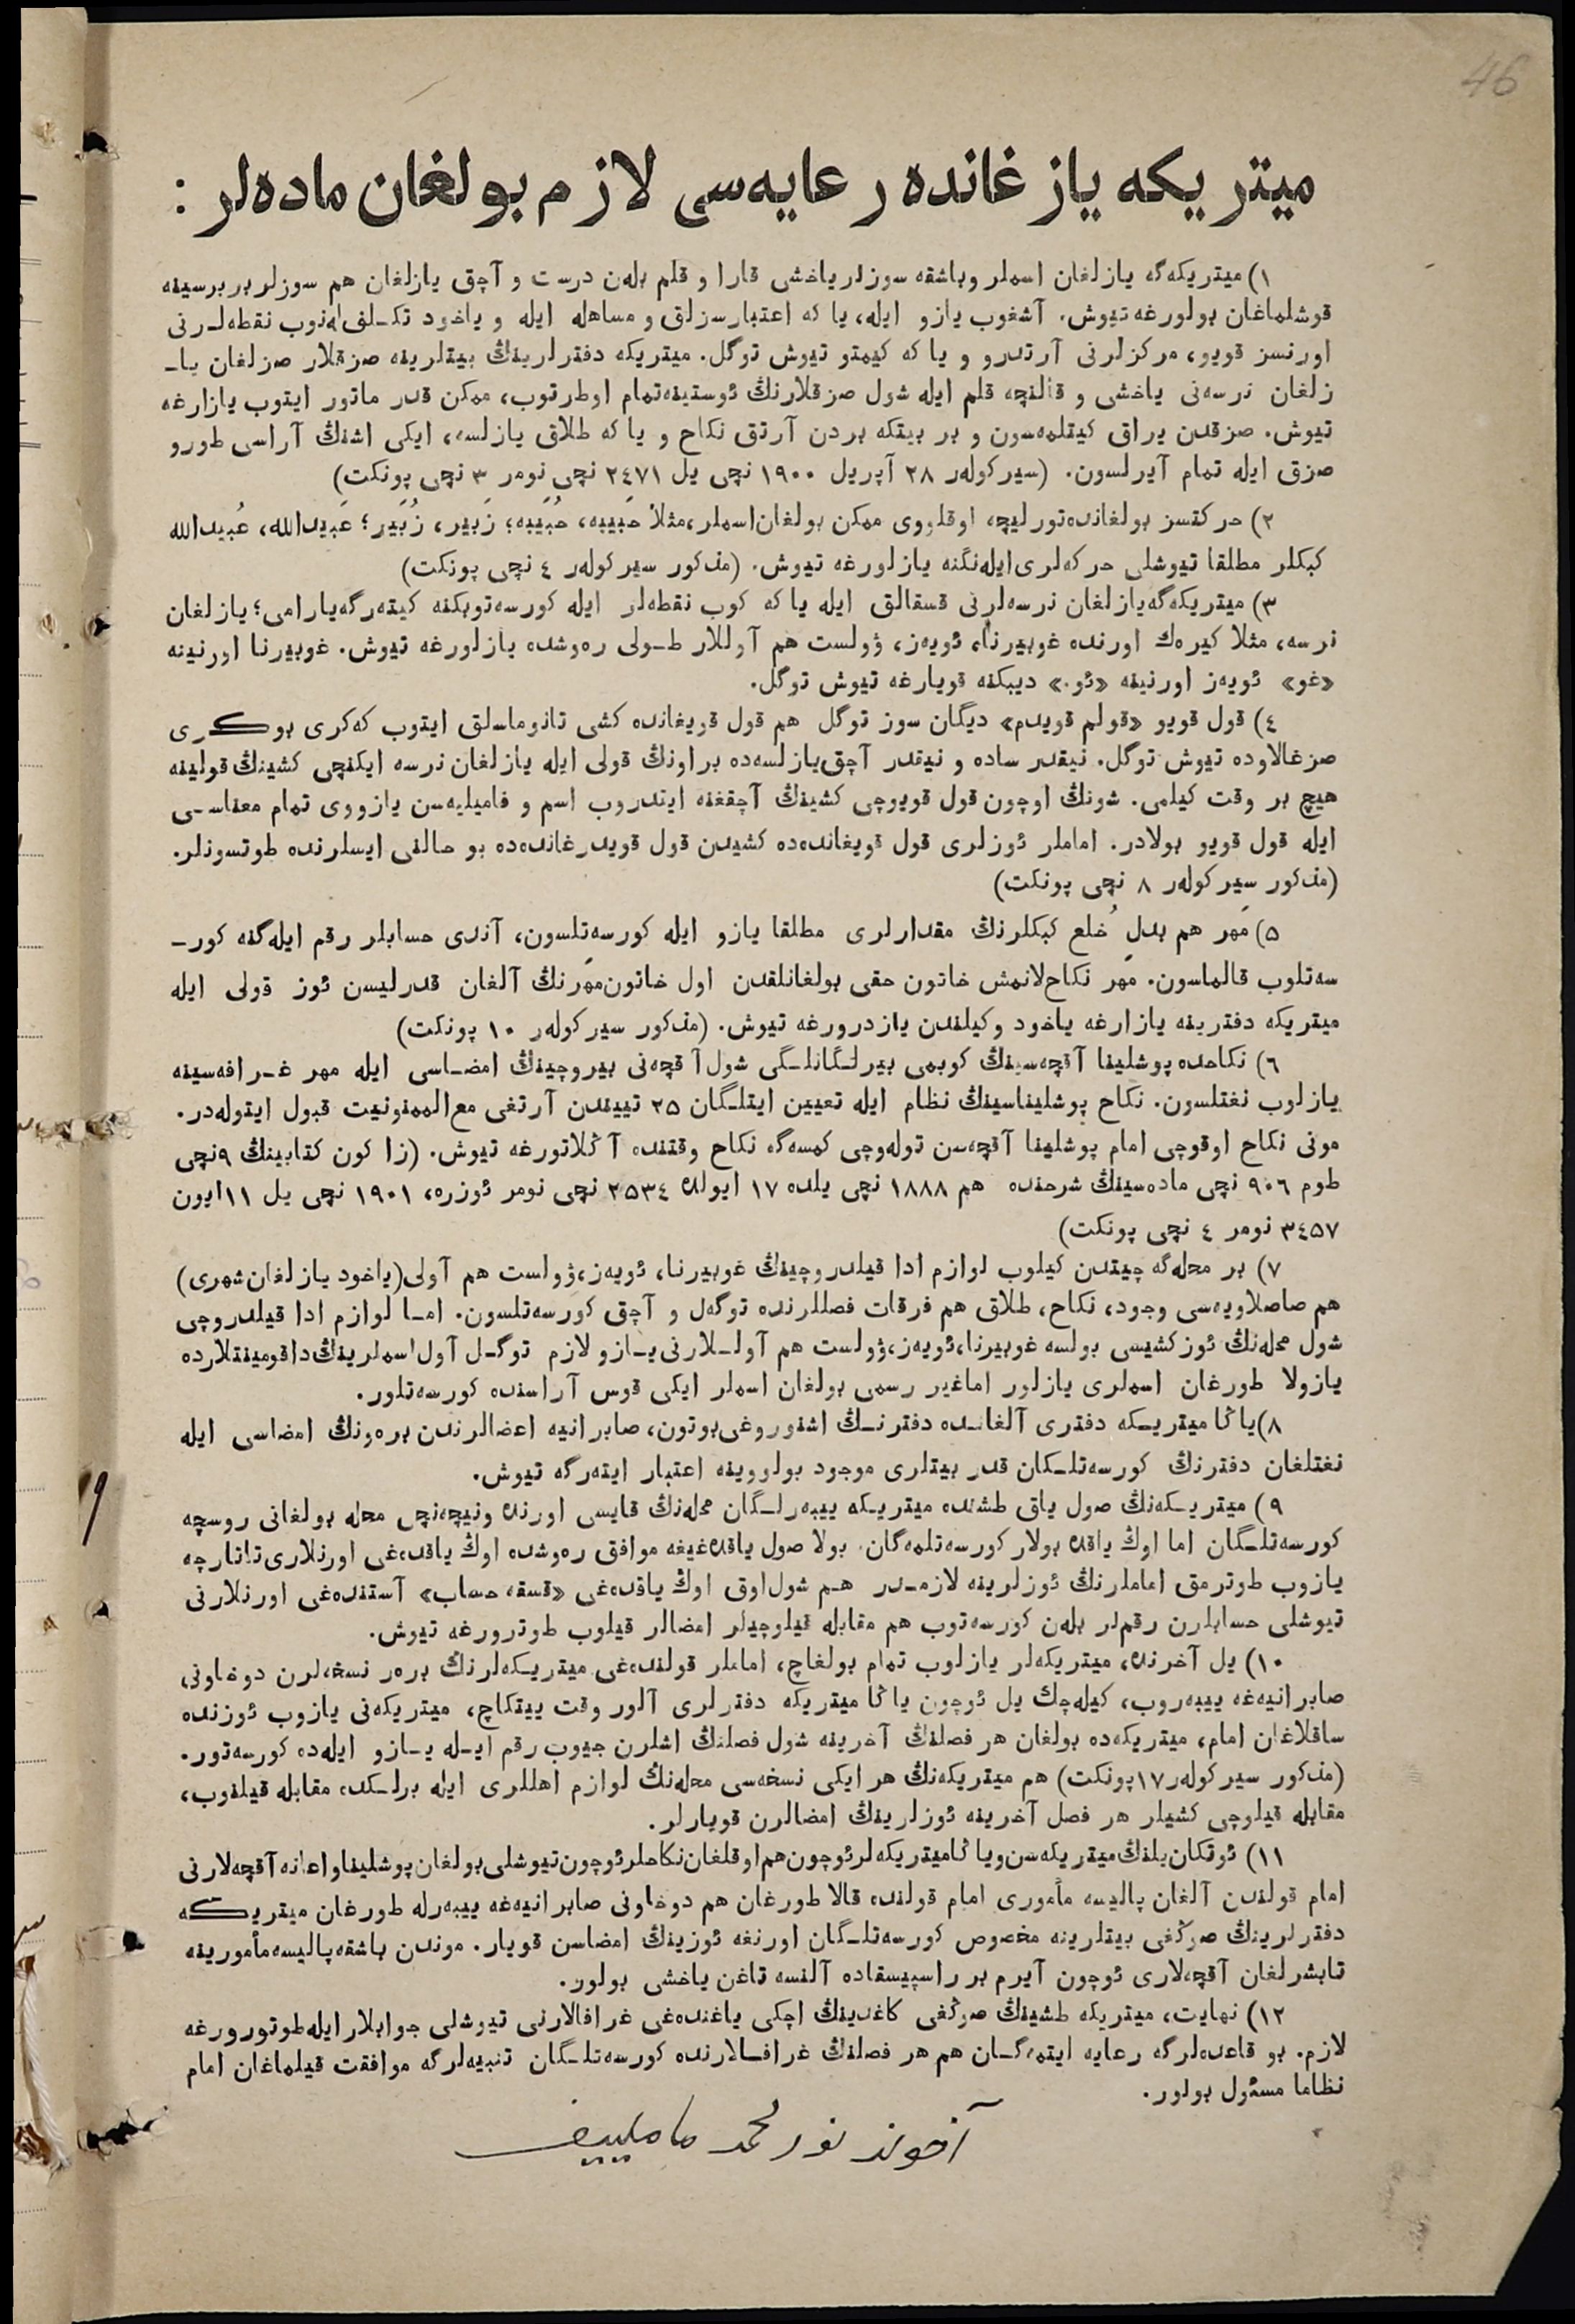 46
ميتريكه يازغانده رعايه‌سى لازم بولغان ماده‌لر :
١) ميتريكه‌گه يازلغان اسملر وباشقه سوزلر ياخشى قارا و قلم بله‌ن درست و آچق يازلغان هم سوزلر بربرسينه
قوشلماغان بولورغه تيوش. آشغوب يازو ايله، يا كه اعتبارسزلق و مساهله ايله و ياخود تكـلف له‌نوب نقطه‌لـرنى
اورنسز قويو، مركزلرنى آرتدرو و يا كه كيمتو تيوش توگل. ميتريكه دفترلرينڭ بيتلرينه صزقلار صزلغان ياـ
زلغان نرسه‌نى ياخشى و قالنچه قلم ايله شول صزقلارنڭ ئوستينه تمام اوطرتوب، ممكن قدر ماتور ايتوب يازارغه
تيوش. صزقدن يراق كيتلمه‌سون و بر بيتكه بردن آرتق نكاح و يا كه طلاق يازلسه، ايكى اشنڭ آراسى طورو
صزق ايله تمام آيرلسون. (سيركوله‌ر ٢٨ آپريل ١٩٠٠ نچى يل ٢٤٧١ نچى نومر ٣ نچى پونكت)
٢) حركتسز بولغانده تورليچه اوقلووى ممكن بولغان اسملر، مثلا حَبيبه، حُبَيبه؛ زَبير، زُبَير؛ عَبيدالله، عُبيدالله
كبكلر مطلقا تيوشلى حركه‌لرى ايله‌نگنه يازلورغه تيوش. (مذكور سيركوله‌ر ٤ نچى پونكت)
٣) ميتريكه‌گه يازلغان نرسه‌لرنى قسقالق ايله يا كه كوب نقطه‌لر ايله كورسه‌توبكنه كيته‌رگه يارامى؛ يازلغان
نرسه، مثلا كيره‌ك اورنده غوبيرنا، ئويه‌ز، ۋولست هم آوللار طـولى ره‌وشده يازلورغه تيوش. غوبيرنا اورنينه
«غو» ئويه‌ز اورنينه «ئو.» ديبكنه قويارغه تيوش توگل.
٤) قول قويو «قولم قويدم» ديگان سوز توگل هم قول قويغانده كشى تانوماسلق ايتوب كه‌كرى بوكـرى
صزغالاوده تيوش توگل. نيقدر ساده و نيقدر آچق يازلسه‌ده براونڭ قولى ايله يازلغان نرسه ايكنچى كشينڭ قولينه
هيچ بر وقت كيلمى. شونڭ اوچون قول قويوچى كشينڭ آچقغنه ايتدروب اسم و فاميليه‌سن يازووى تمام معناسـى
ايله قول قويو بولادر. اماملر ئوزلرى قول قويغانده‌ده كشيدن قول قويدرغانده‌ده بو حالنى ايسلرنده طوتسونلر.
(مذكور سيركوله‌ر ٨ نچى پونكت)
٥) مَهر هم بدل خُلع كبكلرنڭ مقدارلرى مطلقا يازو ايله كورسه‌تلسون، آندى حسابلر رقم ايله‌گنه كورـ
سه‌تلوب قالماسون. مَهر نكاح‌لانمش خاتون حقى بولغانلقدن اول خاتون مَهرنڭ آلغان قدرليسن ئوز قولى ايله
ميتريكه دفترينه يازارغه ياخود وكيلندن يازدرورغه تيوش. (مذكور سيركوله‌ر ١٠ پونكت)
٦) نكاحده پوشلينا آقچه‌سينڭ كوبمى بيرلـگانلـگى شول آقچه‌نى بيروچينڭ امضـاسى ايله مهر غـرافه‌سينه
يازلوب نغتلسون. نكاح پوشليناسينڭ نظام ايله تعيين ايتلـگان ٢٥ تييندن آرتغى مع‌الممنونيت قبول ايتوله‌در.
مونى نكاح اوقوچى امام پوشلينا آقچه‌سن توله‌وچى كمسه‌گه نكاح وقتنده آڭلاتورغه تيوش. (زاكون كتابينڭ ٩نچى
طوم ٩٠٦ نچى ماده‌سينڭ شرحنده هم ١٨٨٨ نچى يلده ١٧ ايولده ٢٥٣٤ نچى نومر ئوزره، ١٩٠١ نچى يل ١١ ايون
٣٤٥٧ نومر ٤ نچى پونكت)
٧) بر محله‌گه چيتدن كيلوب لوازم ادا قيلدروچينڭ غوبيرنا، ئويه‌ز، ۋولست هم آولى (ياخود يازلغان شهرى)
هم صاصلاويه‌سى وجود، نكاح، طلاق هم فرقات فصللرنده توگه‌ل و آچق كورسه‌تلسون. امـا لوازم ادا قيلدروچى
شول محله‌نڭ ئوزكشيسى بولسه غوبيرنا، ئويه‌ز، ۋولست هم آولـلارنى يـازو لازم توگـل آول اسملرينڭ داقومينتلارده
يازولا طورغان اسملرى يازلور اماغير رسمى بولغان اسملر ايكى قوس آراسنده كورسه‌تلور.
٨) ياڭا ميتريـكه دفترى آلغانـده دفترنـڭ اشنوروغى بوتون، صابرانيه اعضالرندن بره‌ونڭ امضاسى ايله
نغتلغان دفترنڭ كورسه‌تلـكان قدر بيتلرى موجود بولووينه اعتبار ايته‌رگه تيوش.
٩) ميتريـكه‌نڭ صول ياق طشنده ميتريـكه ييبه‌رلـگان محله‌نڭ قايسى اورنده ونيچه‌نچى محله بولغانى روسچه
كورسه‌تلـگان اما اوڭ ياقده بولار كورسه‌تلمه‌گان. بولا صول ياقده‌غيغه موافق ره‌وشده اوڭ ياقده‌غى اورنلارى تاتارچه
يازوب طوترمق اماملرنڭ ئوزلرينه لازمـدر هـم شول‌اوق اوڭ ياقده‌غى «قسقه حساب» آستنده‌غى اورنلارنى
تيوشلى حسابلرن رقم‌لر بله‌ن كورسه‌توب هم مقابله قيلوچيلر امضالر قيلوب طوترورغه تيوش.
١٠) يل آخرنده، ميتريكه‌لر يازلوب تمام بولغاچ، اماملر قولنده‌غى ميتريـكه‌لرنڭ بره‌ر نسخه‌لرن دوخاونى
صابرانيه‌غه ييبه‌روب، كيله‌چك يل ئوچون ياڭا ميتريكه دفترلرى آلور وقت ييتكاچ، ميتريكه‌نى يازوب ئوزنده
ساقلاغان امام، ميتريكه‌ده بولغان هر فصلنڭ آخرينه شول فصلنڭ اشلرن جيوب رقم ايـله يـازو ايله‌ده كورسه‌تور.
(مذكور سيركوله‌ر ١٧ پونكت) هم ميتريكه‌نڭ هر ايكى نسخه‌سى محله‌نڭ لوازم اهللرى ايله برلـكده مقابله قيلنوب،
مقابله قيلوچى كشيلر هر فصل آخرينه ئوزلرينڭ امضالرن قويارلر.
١١) ئوتكان يلنڭ ميتريكه‌سن وياڭا ميتريكه‌لر ئوچون هم اوقلغان نكاحلر ئوچون تيوشلى بولغان پوشلينا و اعانه آقچه‌لارنى
امام قولندن آلغان پاليسه مأمورى امام قولنده قالا طورغان هم دوخاونى صابرانيه‌غه ييبه‌رله طورغان ميتريـكه
دفترلرينڭ صوڭغى بيتلرينه مخصوص كورسه‌تلـگان اورنغه ئوزينڭ امضاسن قويار. موندن باشقه پاليسه مأمورينه
تابشرلغان آقچه‌لارى ئوچون آيرم بر راسپيسقاده آلنسه تاغن ياخشى بولور.
١٢) نهايت، ميتريكه طشينڭ صوڭغى كاغدينڭ اچكى ياغنده‌غى غرافالارنى تيوشلى جوابلار ايله طوتورورغه
لازم. بو قاعده‌لرگه رعايه ايتمه‌گـان هم هر فصلنڭ غرافـالارنده كورسه‌تلـگان تنبيه‌لرگه موافقت قيلماغان امام
نظاما مسئول بولور.
آخوند نورمحمد مامليیف